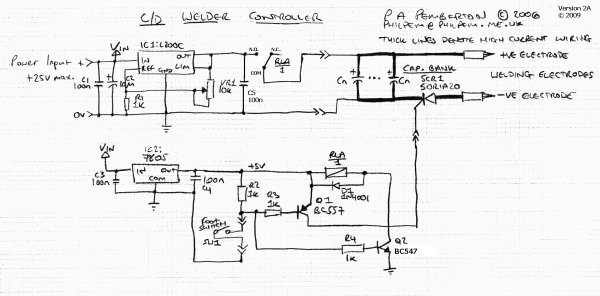 C/D WELDER CONTROLLER
P A PEMBERTON © 2006
PHILPEM@PHILPEM.ME.UK
Version 2A
© 2009
THICK LINES DENOTE HIGH CURRENT WIRING
Power Input +
+25V max.
0V
VIN
IC1: L200C
IN
OUT
REF
GND
LIM
C1
100n
C2
10µ
R1
1k
VR1
10k
C5
100n
N.C.
N.O.
COM
RLA
1
CAP. BANK
Cn
Cn
SCR1
50RIA20
+VE ELECTRODE
WELDING ELECTRODES
-VE ELECTRODE
VIN
IC2:
7805
IN
OUT
COM
C3
100n
100n
C4
+5V
R2
1k
R3
1k
FOOT
SWITCH
SW1
Q1
BC557
RLA
1
D1
1N4001
R4
1k
Q2
BC547